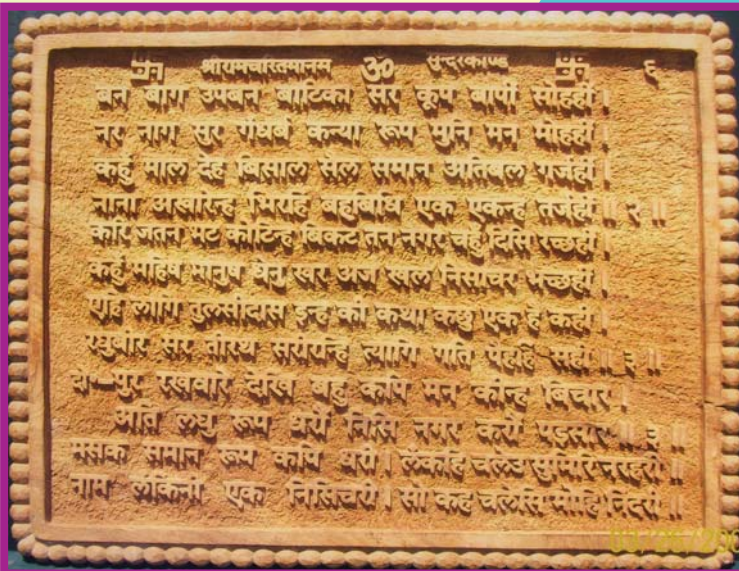 卐 श्रीरामचरितमानस ॐ सुन्दरकाण्ड 卐 ६
बन बाग उपबन बाटिका सर कूप बापीं सोहहीं।
नर नाग सुर गंधर्ब कन्या रूप मुनि मन मोहहीं।
कहुँ माल देह बिसाल सैल समान अतिबल गर्जहीं।
नाना अखारेन्ह भिरहिं बहुबिधि एक एकन्ह तर्जहीं॥ २ ॥
करि जतन भट कोटिन्ह बिकट तन नगर चहुँ दिसि रच्छहीं।
कहुँ महिष मानुष धेनु खर अज खल निसाचर भच्छहीं।
एहि लागि तुलसीदास इन्ह की कथा कछु एक है कही।
रघुबीर सर तीरथ सरीरन्हि त्यागि गति पैहहिं सही॥ ३ ॥
दो॰—पुर रखवारे देखि बहु कपि मन कीन्ह बिचार।
अति लघु रूप धरौं निसि नगर करौं पइसार॥ ३ ॥
मसक समान रूप कपि धरी। लंकहि चलेउ सुमिरि नरहरी॥
नाम लंकिनी एक निसिचरी। सो कह चलेसि मोहि निंदरी॥